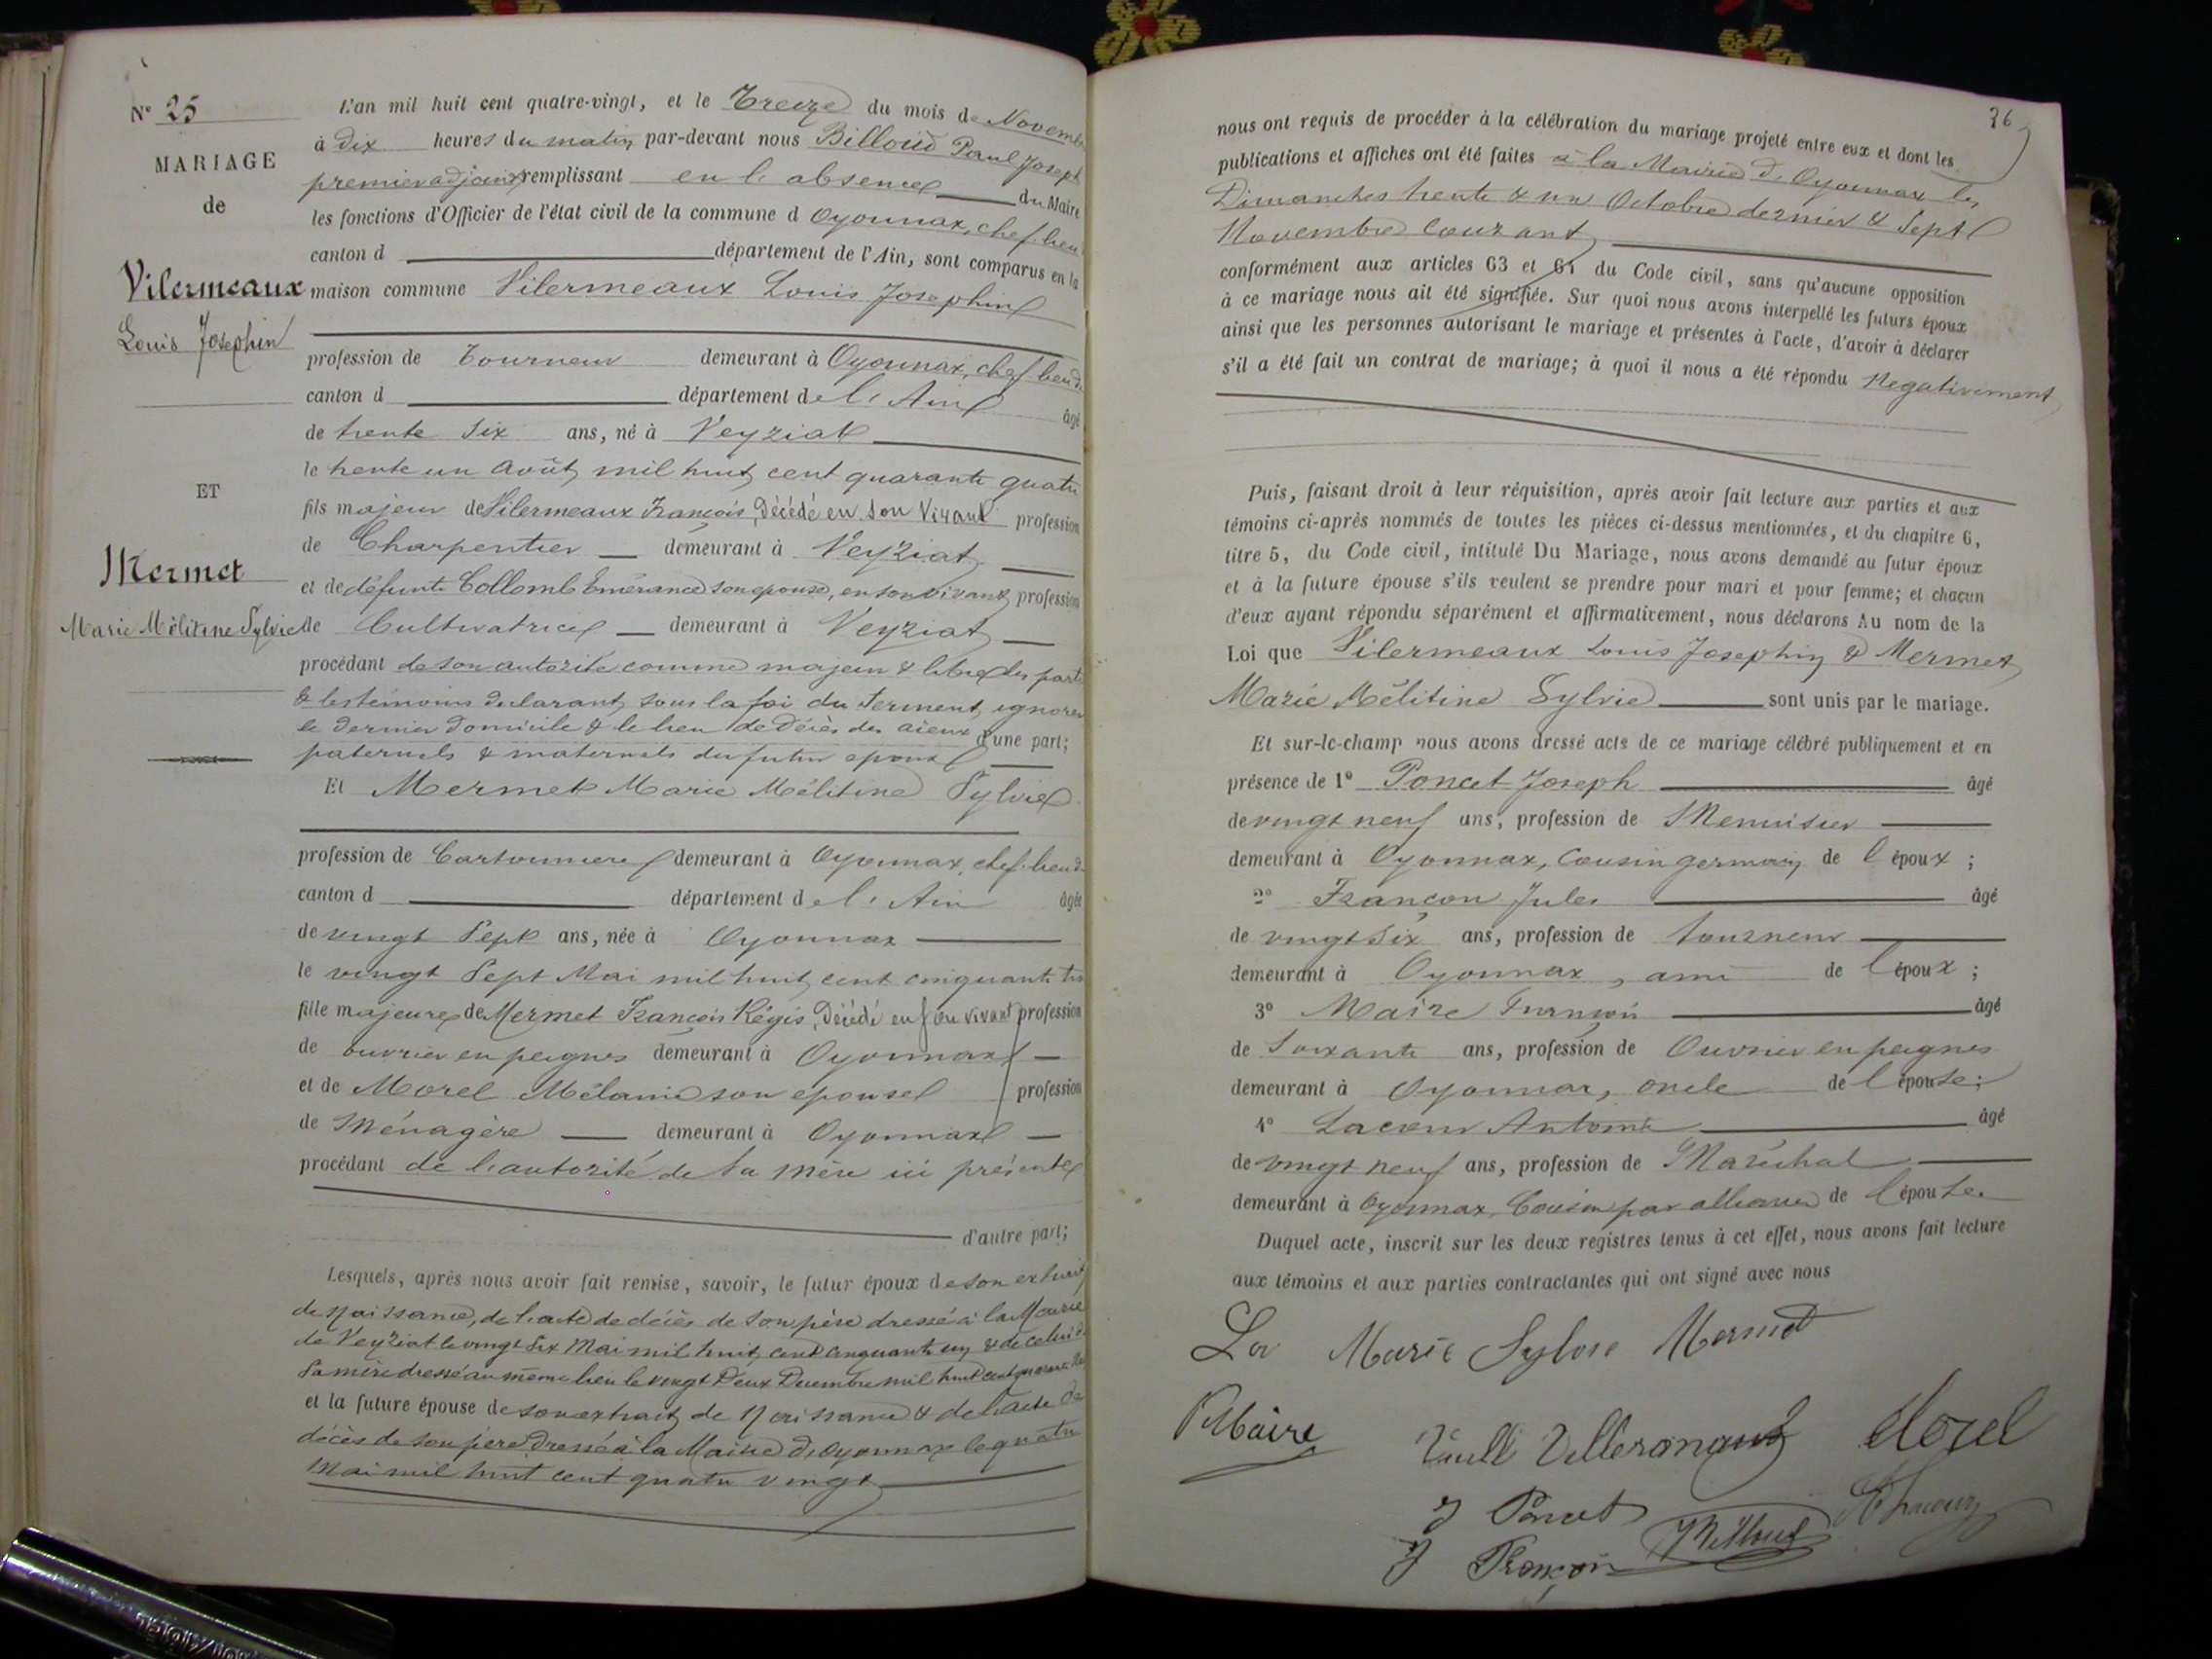 N° 25
MARIAGE
de
Vilermeaux
Louis Josephin
ET
Mermet
Marie Mélitine Sylvie
L'an mil huit cent quatre-vingt, et le Treize du mois de Novembre
à dix heures du matin par-devant nous Billoud Paul Joseph
premier adjoint remplissant en l'absence du Maire
les fonctions d'Officier de l'état civil de la commune d Oyonnax, chef lieu
canton d département de l'Ain, sont comparus en la
maison commune Vilermeaux Louis Josephin
profession de Tourneur demeurant à Oyonnax, chef lieu de
canton d département de l'Ain âgé
de trente six ans, né à Veyziat
le trente un Août mil huit cent quarante quatre
fils majeur de Vilermeaux François, Décédé en son Vivant profession
de Charpentier demeurant à Veyziat
et de défunte Collomb Emérance son épouse, en son vivant profession
de Cultivatrice demeurant à Veyziat
procédant de son autorité comme majeur & libre les parties
& les témoins déclarant sous la foi du serment ignorer
le dernier domicile & le lieu de décès des aïeux d'une part;
paternels & maternels du futur époux
Et Mermet Marie Mélitine Sylvie
profession de Cartonnière demeurant à Oyonnax, chef-lieu de
canton d département de l'Ain âgée
de vingt Sept ans, née à Oyonnax
le vingt Sept Mai mil huit cent cinquante trois
fille majeure de Mermet François Régis, Décédé en son vivant profession
de ouvrier en peignes demeurant à Oyonnax
et de Morel Mélanie son épouse profession
de Ménagère demeurant à Oyonnax
procédant de l'autorité de sa mère ici présente
d'autre part;
Lesquels, après nous avoir fait remise, savoir, le futur époux de son extrait
de Naissance, de l'acte de décès de son père dressé à la Mairie
de Veyziat le vingt Six Mai mil huit cent cinquante un & de celui de
Sa mère dressé au même lieu le vingt Deux Décembre mil huit cent
et la future épouse de son extrait de Naissance & de l'acte de
décès de son père Dressé à la Mairie d'Oyonnax le quatre
Mai mil huit cent quatre vingt
36
nous ont requis de procéder à la célébration du mariage projeté entre eux et dont les
publications et affiches ont été faites à la Mairie d'Oyonnax les
Dimanches trente & un Octobre dernier & Sept
Novembre courant
conformément aux articles 63 et 64 du Code civil, sans qu'aucune opposition
à ce mariage nous ait été signifiée. Sur quoi nous avons interpellé les futurs époux
ainsi que les personnes autorisant le mariage et présentes à l'acte, d'avoir à déclarer
s'il a été fait un contrat de mariage; à quoi il nous a été répondu Négativement
Puis, faisant droit à leur réquisition, après avoir fait lecture aux parties et aux
témoins ci-après nommés de toutes les pièces ci-dessus mentionnées, et du chapitre 6,
titre 5, du Code civil, intitulé Du Mariage, nous avons demandé au futur époux
et à la future épouse s'ils veulent se prendre pour mari et pour femme; et chacun
d'eux ayant répondu séparément et affirmativement, nous déclarons Au nom de la
Loi que Vilermeaux Louis Josephin & Mermet
Marie Mélitine Sylvie sont unis par le mariage.
Et sur-le-champ nous avons dressé acte de ce mariage célébré publiquement et en
présence de 1° Poncet Joseph âgé
de vingt neuf ans, profession de Menuisier
demeurant à Oyonnax, Cousin germain de l'époux ;
2° Françon Jules âgé
de vingt Six ans, profession de tourneur
demeurant à Oyonnax, ami de l'époux ;
3° Maire François âgé
de Soixante ans, profession de Ouvrier en peignes
demeurant à Oyonnax, oncle de l'épouse;
4° Lacour Antoine âgé
de vingt neuf ans, profession de Maréchal
demeurant à Oyonnax, Cousin par alliance de l'épouse.
Duquel acte, inscrit sur les deux registres tenus à cet effet, nous avons fait lecture
aux témoins et aux parties contractantes qui ont signé avec nous
Marie Sylvie Mermet
Maire
Morel
J Poncet
J Françon